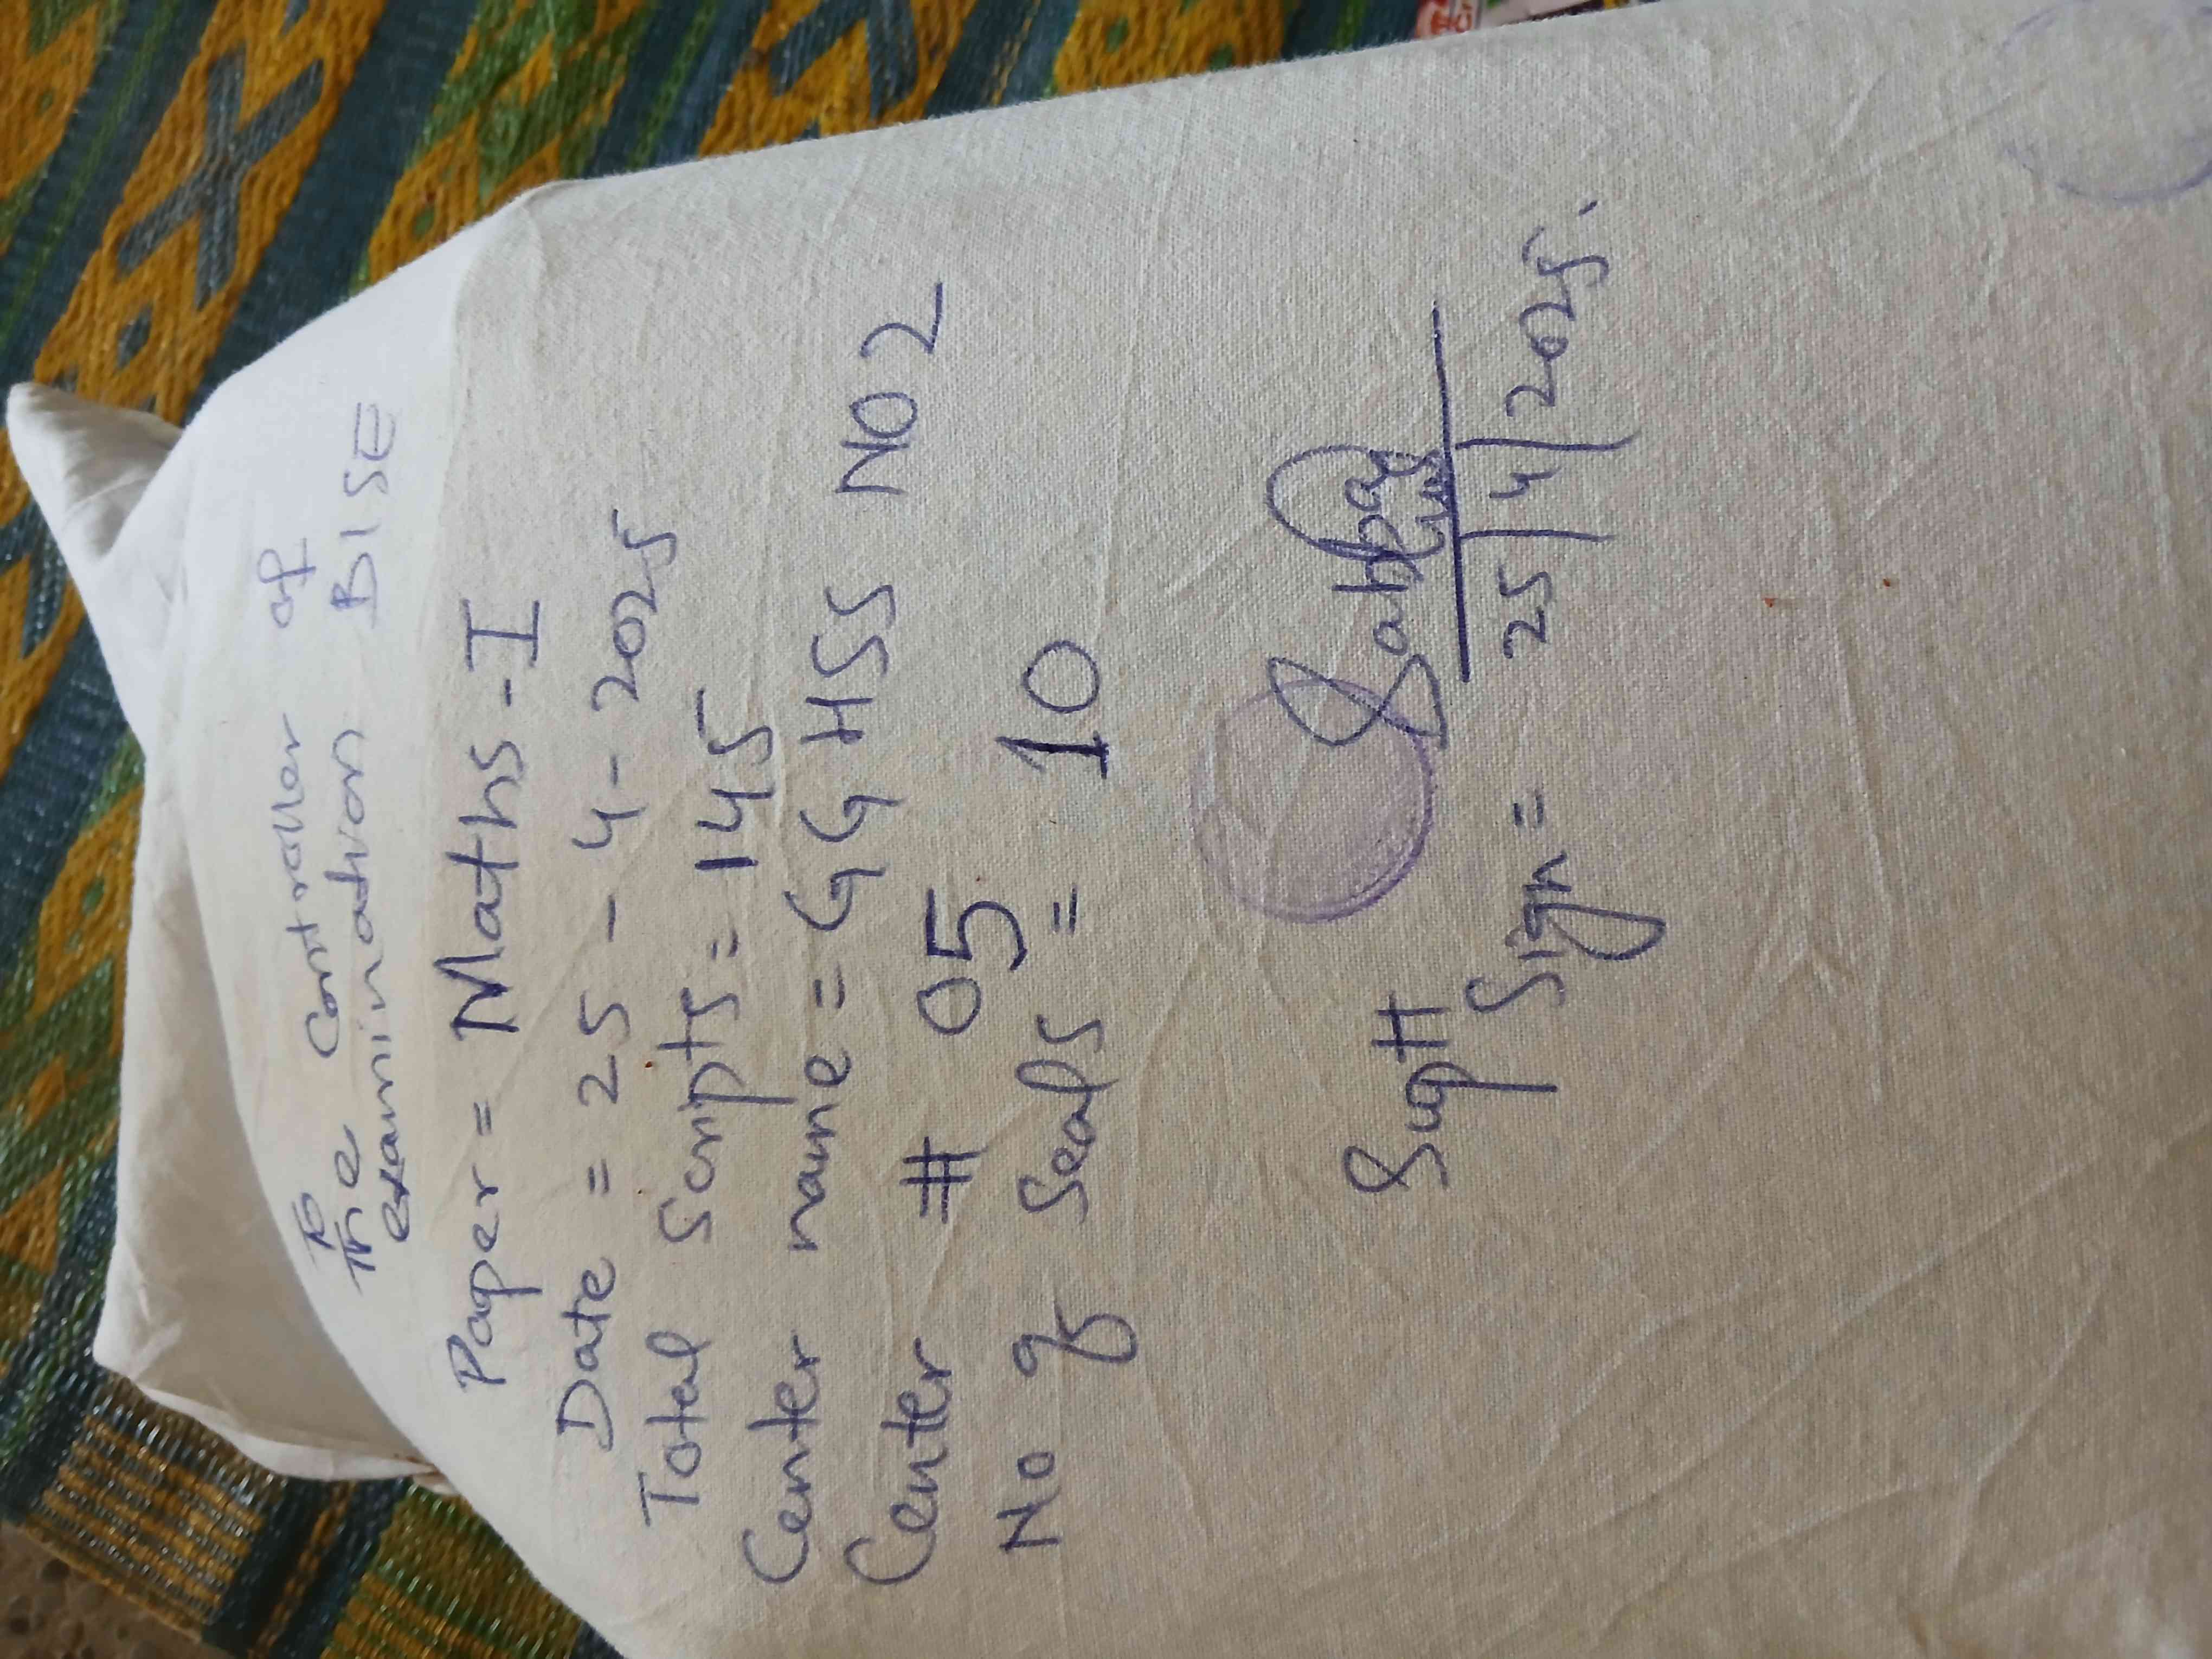 To
The Controller of
examination BISE
Paper = Maths-I
Date = 25-4-2025
Total Scripts = 145
Center name = GGHSS NO2
Center # 05
No of Seals = 10
Suptt Sign =
25/4/2025.